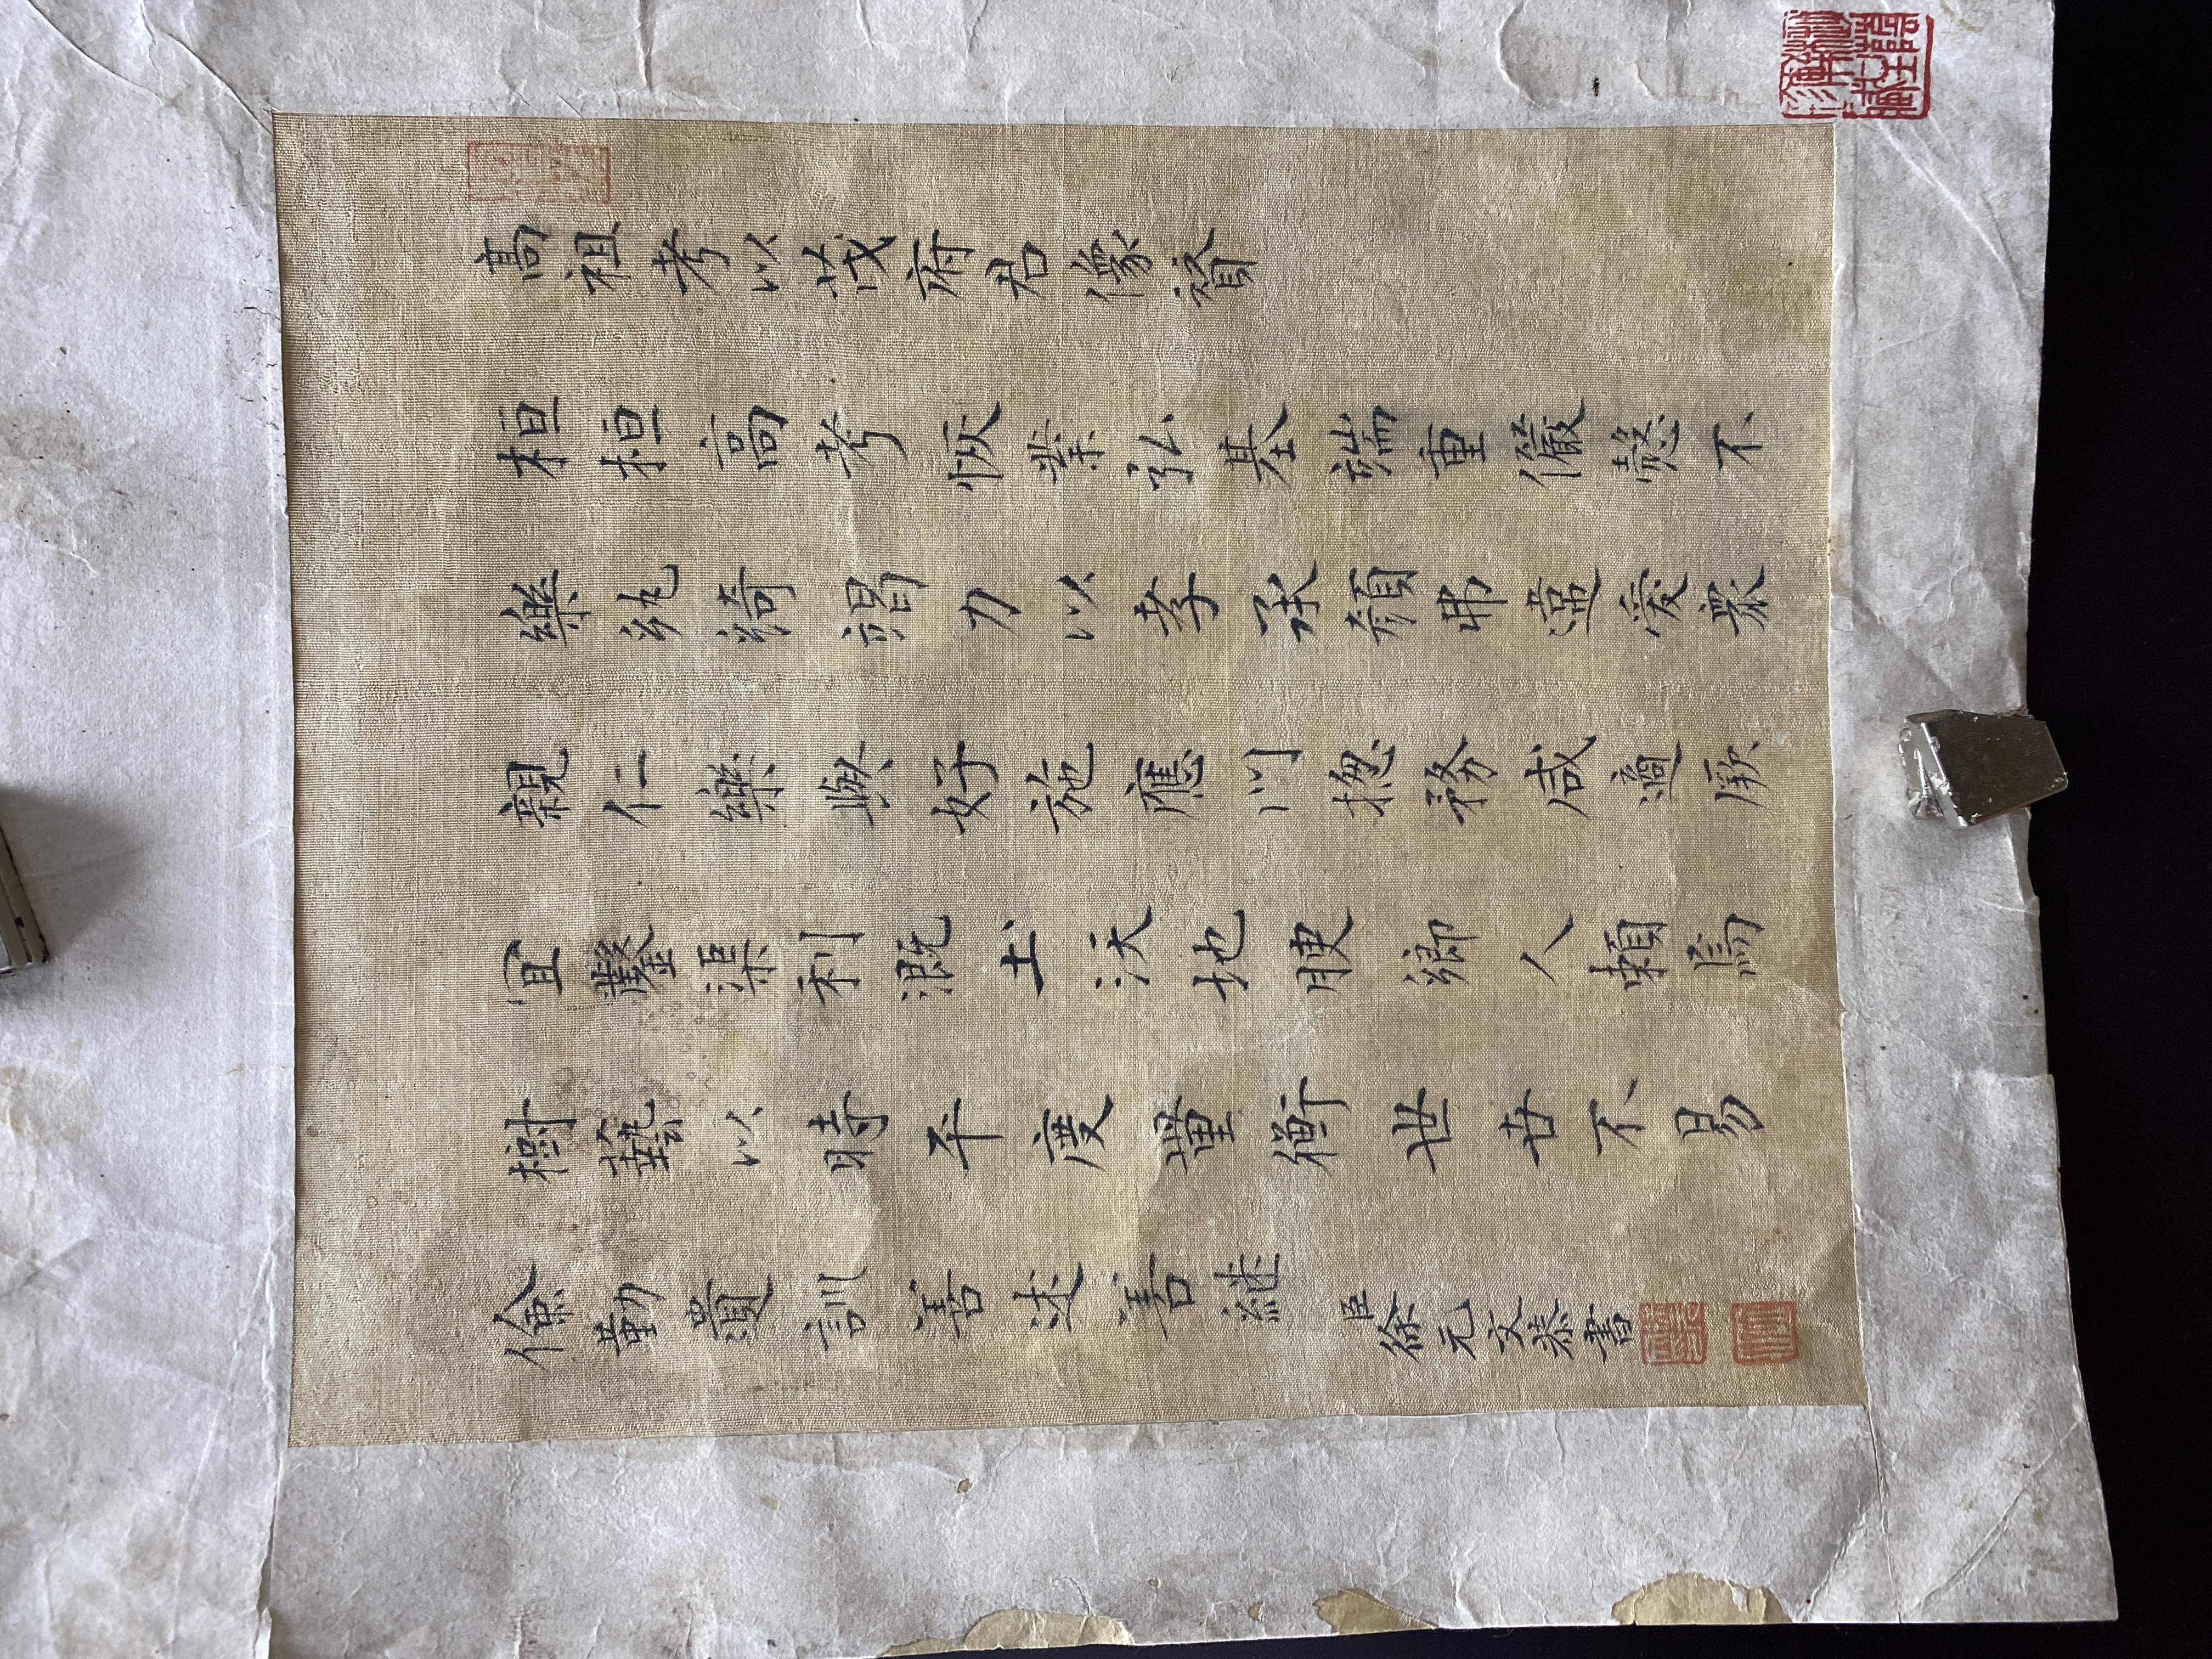 高祖考以茂府君像贊
桓桓高考恢業弘基端重儼愨不
樂紈綺竭力以孝承顔弗違愛眾
親仁樂與好施應川揔務咸適厥
宜鑿渠利溉土沃地腴鄉人賴焉
樹藝以時平度量衡世世不易
儉勤遺訓善述善繼
臣徐元文恭書